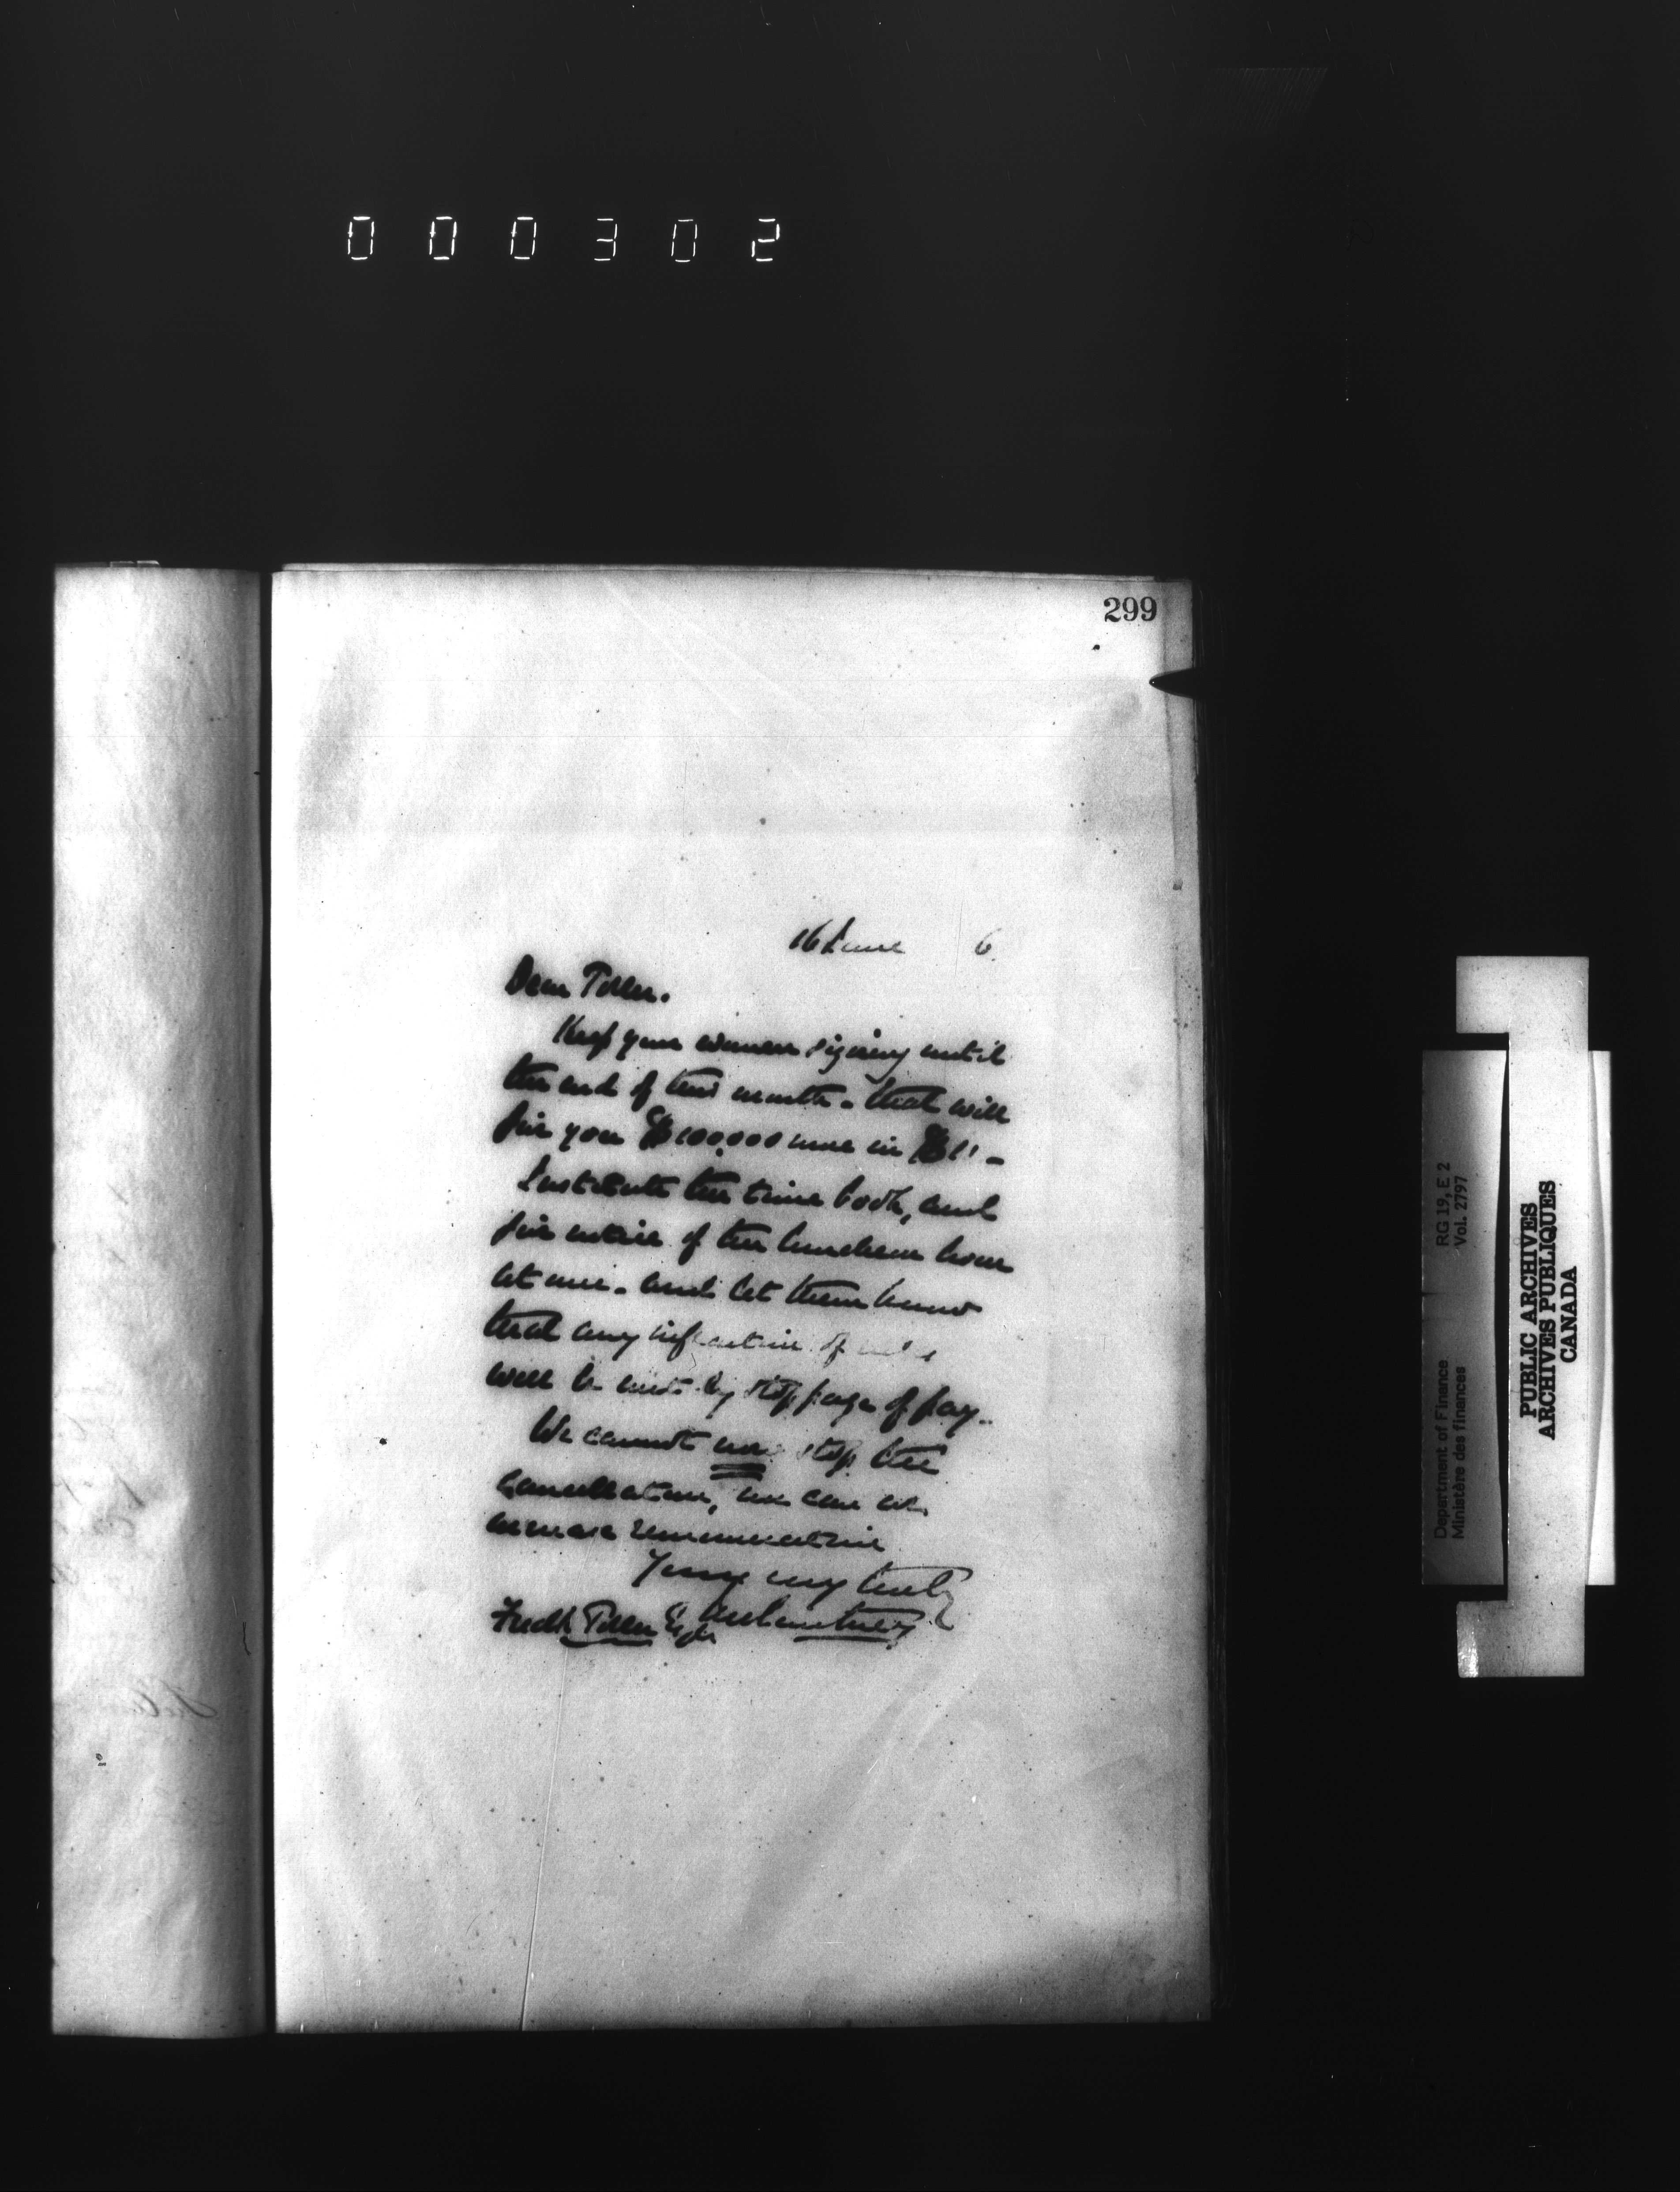 000302
299
16 June 6
Dear Toller.
Keep your women signing until
the end of this month. that will
give you $100,000 more in $1s -
Institute the time book, and
give notice of the luncheon hour
at once. and let them know
that any infraction of rules
will be met by stoppage of pay.
We cannot now stop the
Cancellation, nor can we
increase remuneration
Yours very truly
Fredk Toller Esqr
Department of Finance RG 19, E 2
Ministère des finances Vol. 2797
PUBLIC ARCHIVES
ARCHIVES PUBLIQUES
CANADA